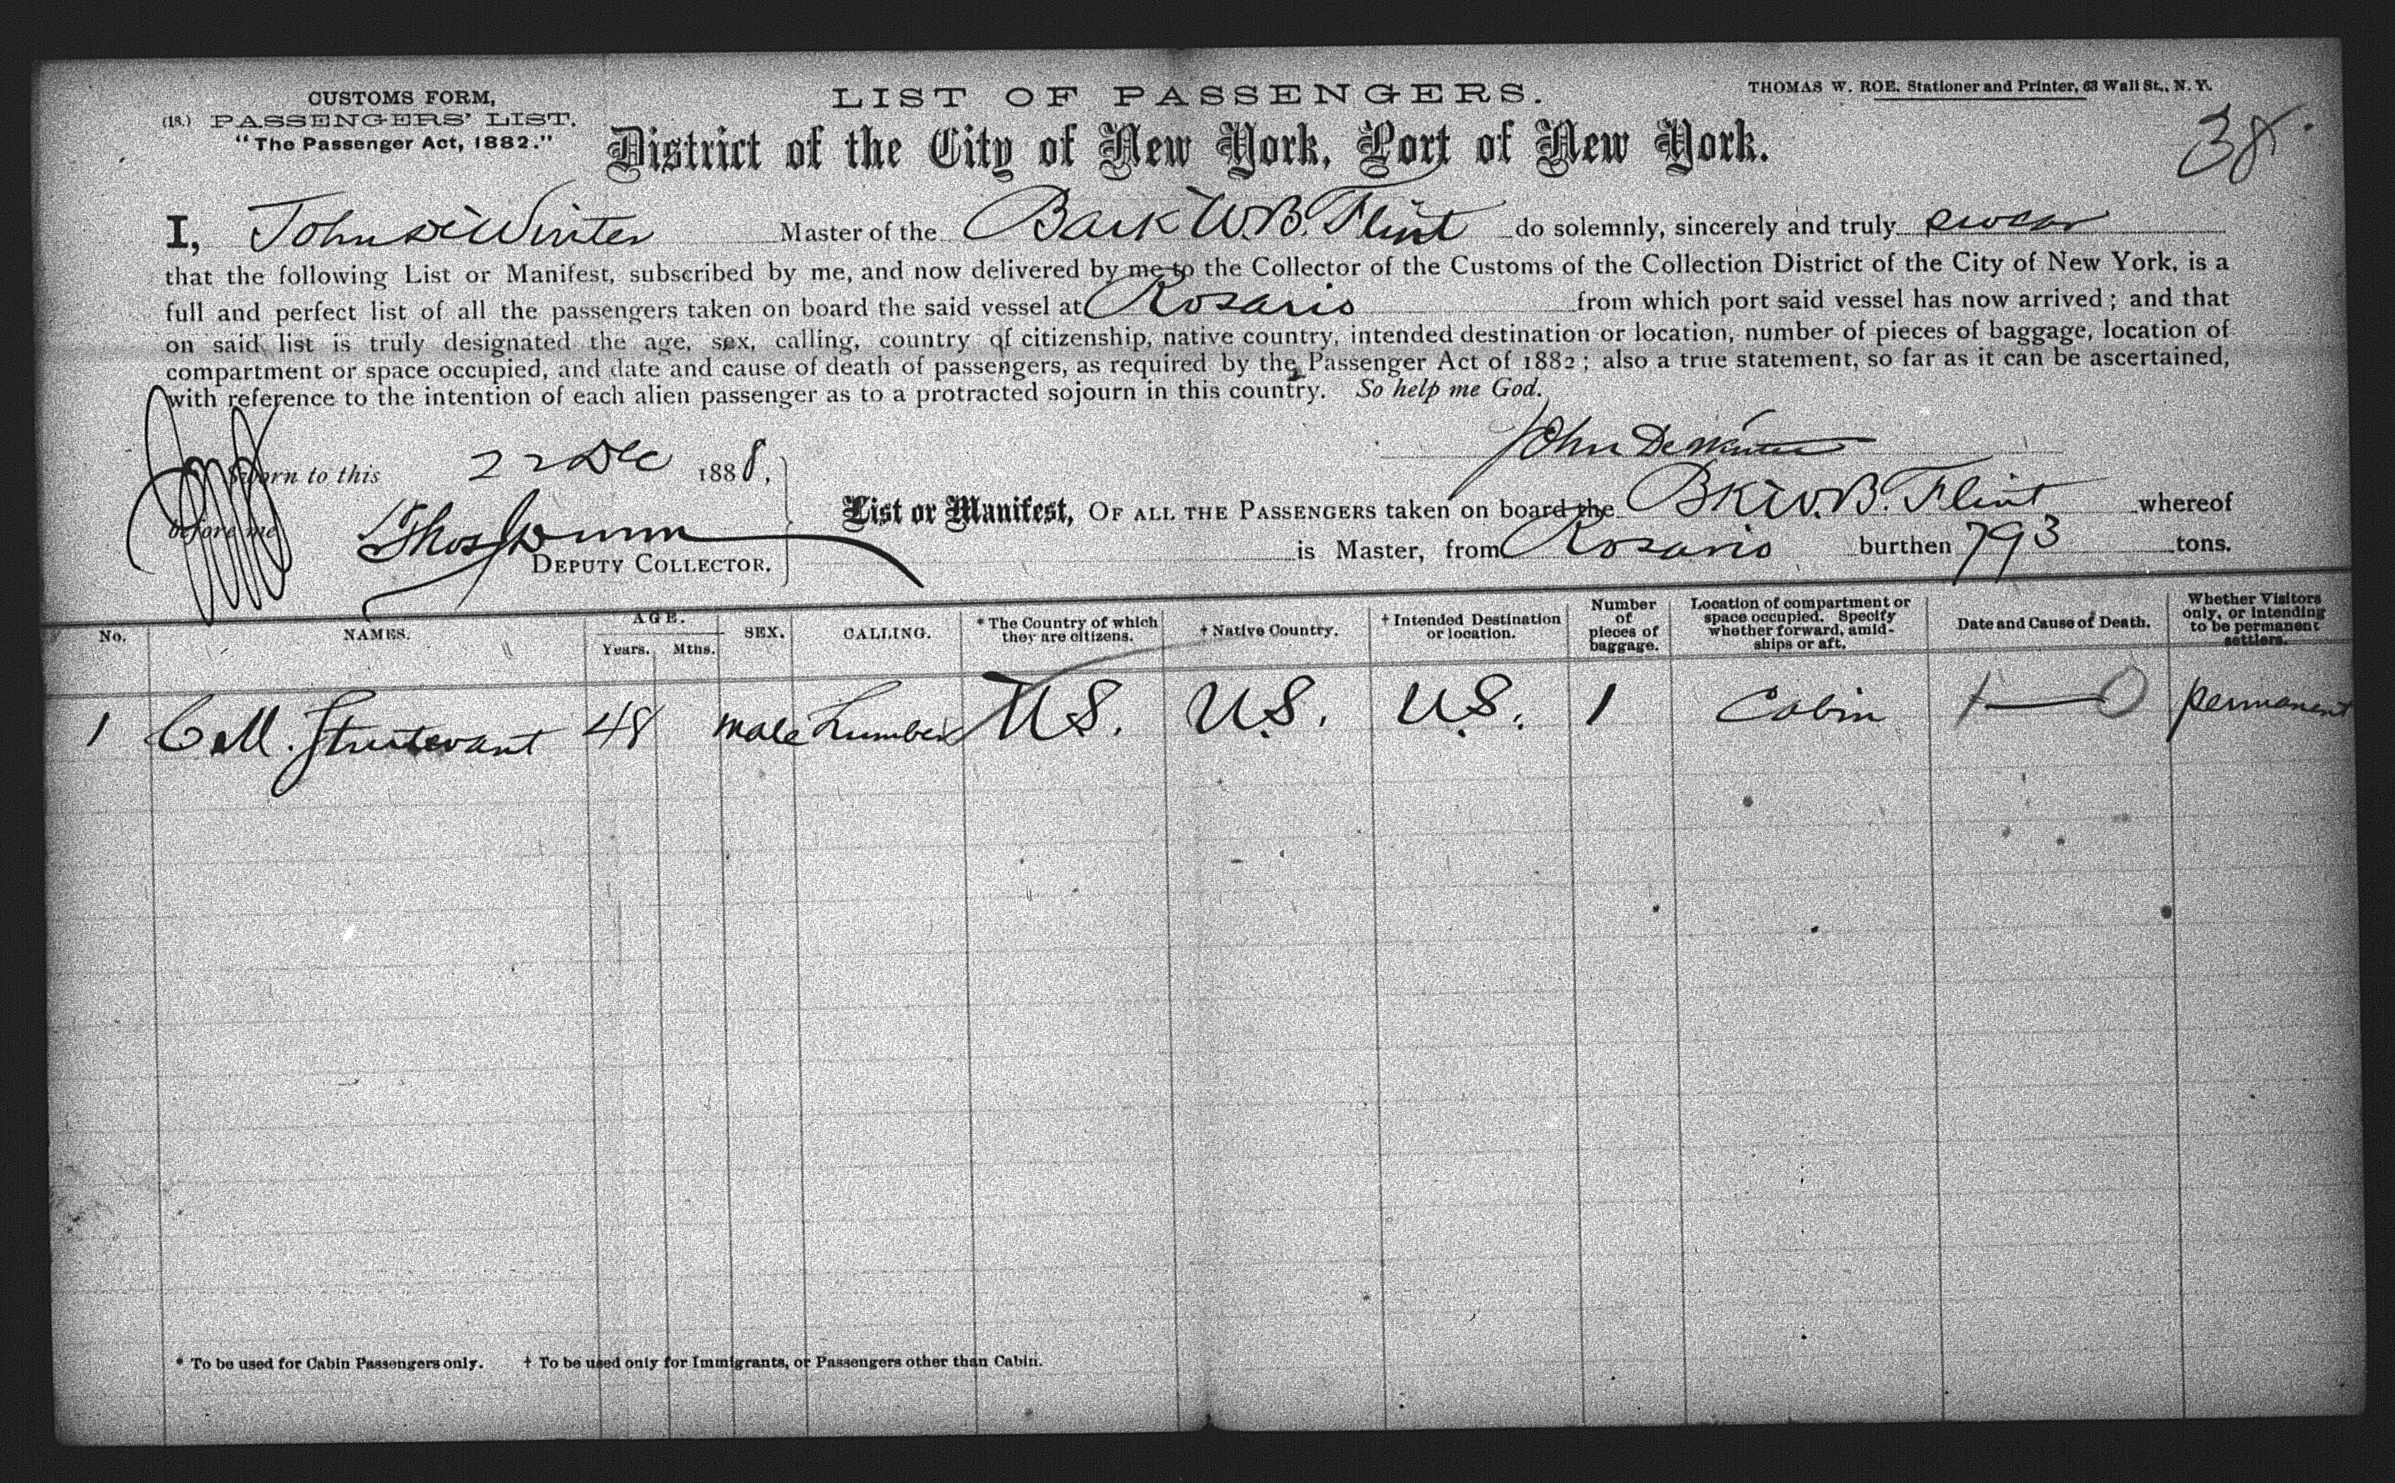 CUSTOMS FORM,
(18.) PASSENGERS' LIST.
"The Passenger Act, 1882."
LIST OF PASSENGERS.
THOMAS W. ROE, Stationer and Printer, 63 Wall St., N. Y.
District of the City of New York, Port of New York.
38
I, John De Winter Master of the Bark W.B. Flint do solemnly, sincerely and truly swear
that the following List or Manifest, subscribed by me, and now delivered by me to the Collector of the Customs of the Collection District of the City of New York, is a
full and perfect list of all the passengers taken on board the said vessel at Rosario from which port said vessel has now arrived; and that
on said list is truly designated the age, sex, calling, country of citizenship, native country, intended destination or location, number of pieces of baggage, location of
compartment or space occupied, and date and cause of death of passengers, as required by the Passenger Act of 1882; also a true statement, so far as it can be ascertained,
with reference to the intention of each alien passenger as to a protracted sojourn in this country. So help me God.
John De Winter
Sworn to this 22 Dec 1888,
before me Thos Dunn
DEPUTY COLLECTOR.
List or Manifest, OF ALL THE PASSENGERS taken on board the Bk W.B. Flint whereof
is Master, from Rosario burthen 793 tons.
No. NAMES. AGE. Years. Mths. SEX. CALLING. * The Country of which they are citizens. † Native Country. † Intended Destination or location. Number of pieces of baggage. Location of compartment or space occupied. Specify whether forward, amid-ships or aft. Date and Cause of Death. Whether Visitors only, or intending to be permanent settlers.
1 Sturtevant 48 male Lumber U.S. U.S. U.S. 1 Cabin permanent
* To be used for Cabin Passengers only. † To be used only for Immigrants, or Passengers other than Cabin.